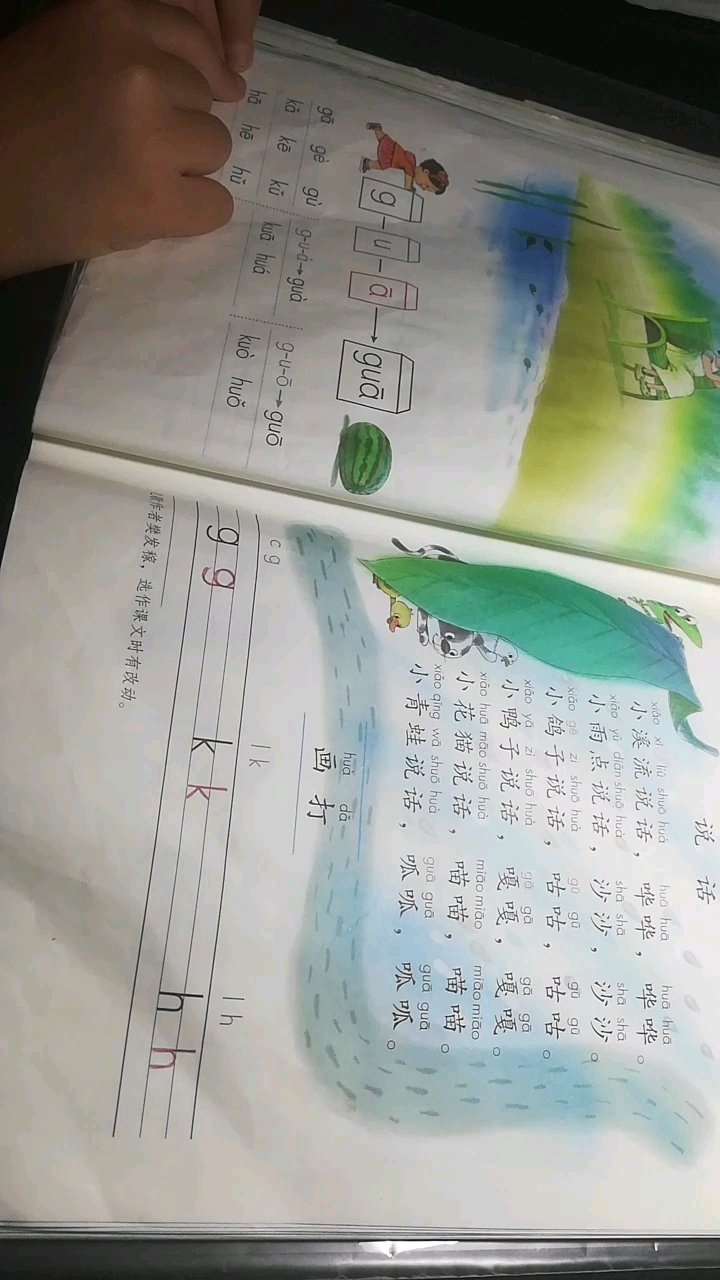 g-u-ā→guā
gā gè gǔ
g-u-ā→guā
g-u-ō→guō
kā kě kǔ
kuā huá
kuò huǒ
hā hē hǔ
说话
xiǎo xī liú shuō huà huā huā huā huā
小溪流说话，哗哗，哗哗。
xiǎo yǔ diǎn shuō huà shā shā shā shā
小雨点说话，沙沙，沙沙。
xiǎo gē zi shuō huà gū gū gū gū
小鸽子说话，咕咕，咕咕。
xiǎo yā zi shuō huà gā gā gā gā
小鸭子说话，嘎嘎，嘎嘎。
xiǎo huā māo shuō huà miāo miāo miāo miāo
小花猫说话，喵喵，喵喵。
xiǎo qīng wā shuō huà guā guā guā guā
小青蛙说话，呱呱，呱呱。
huà dǎ
画 打
c g l k l h
g g k k h h
作者樊发稼，选作课文时有改动。